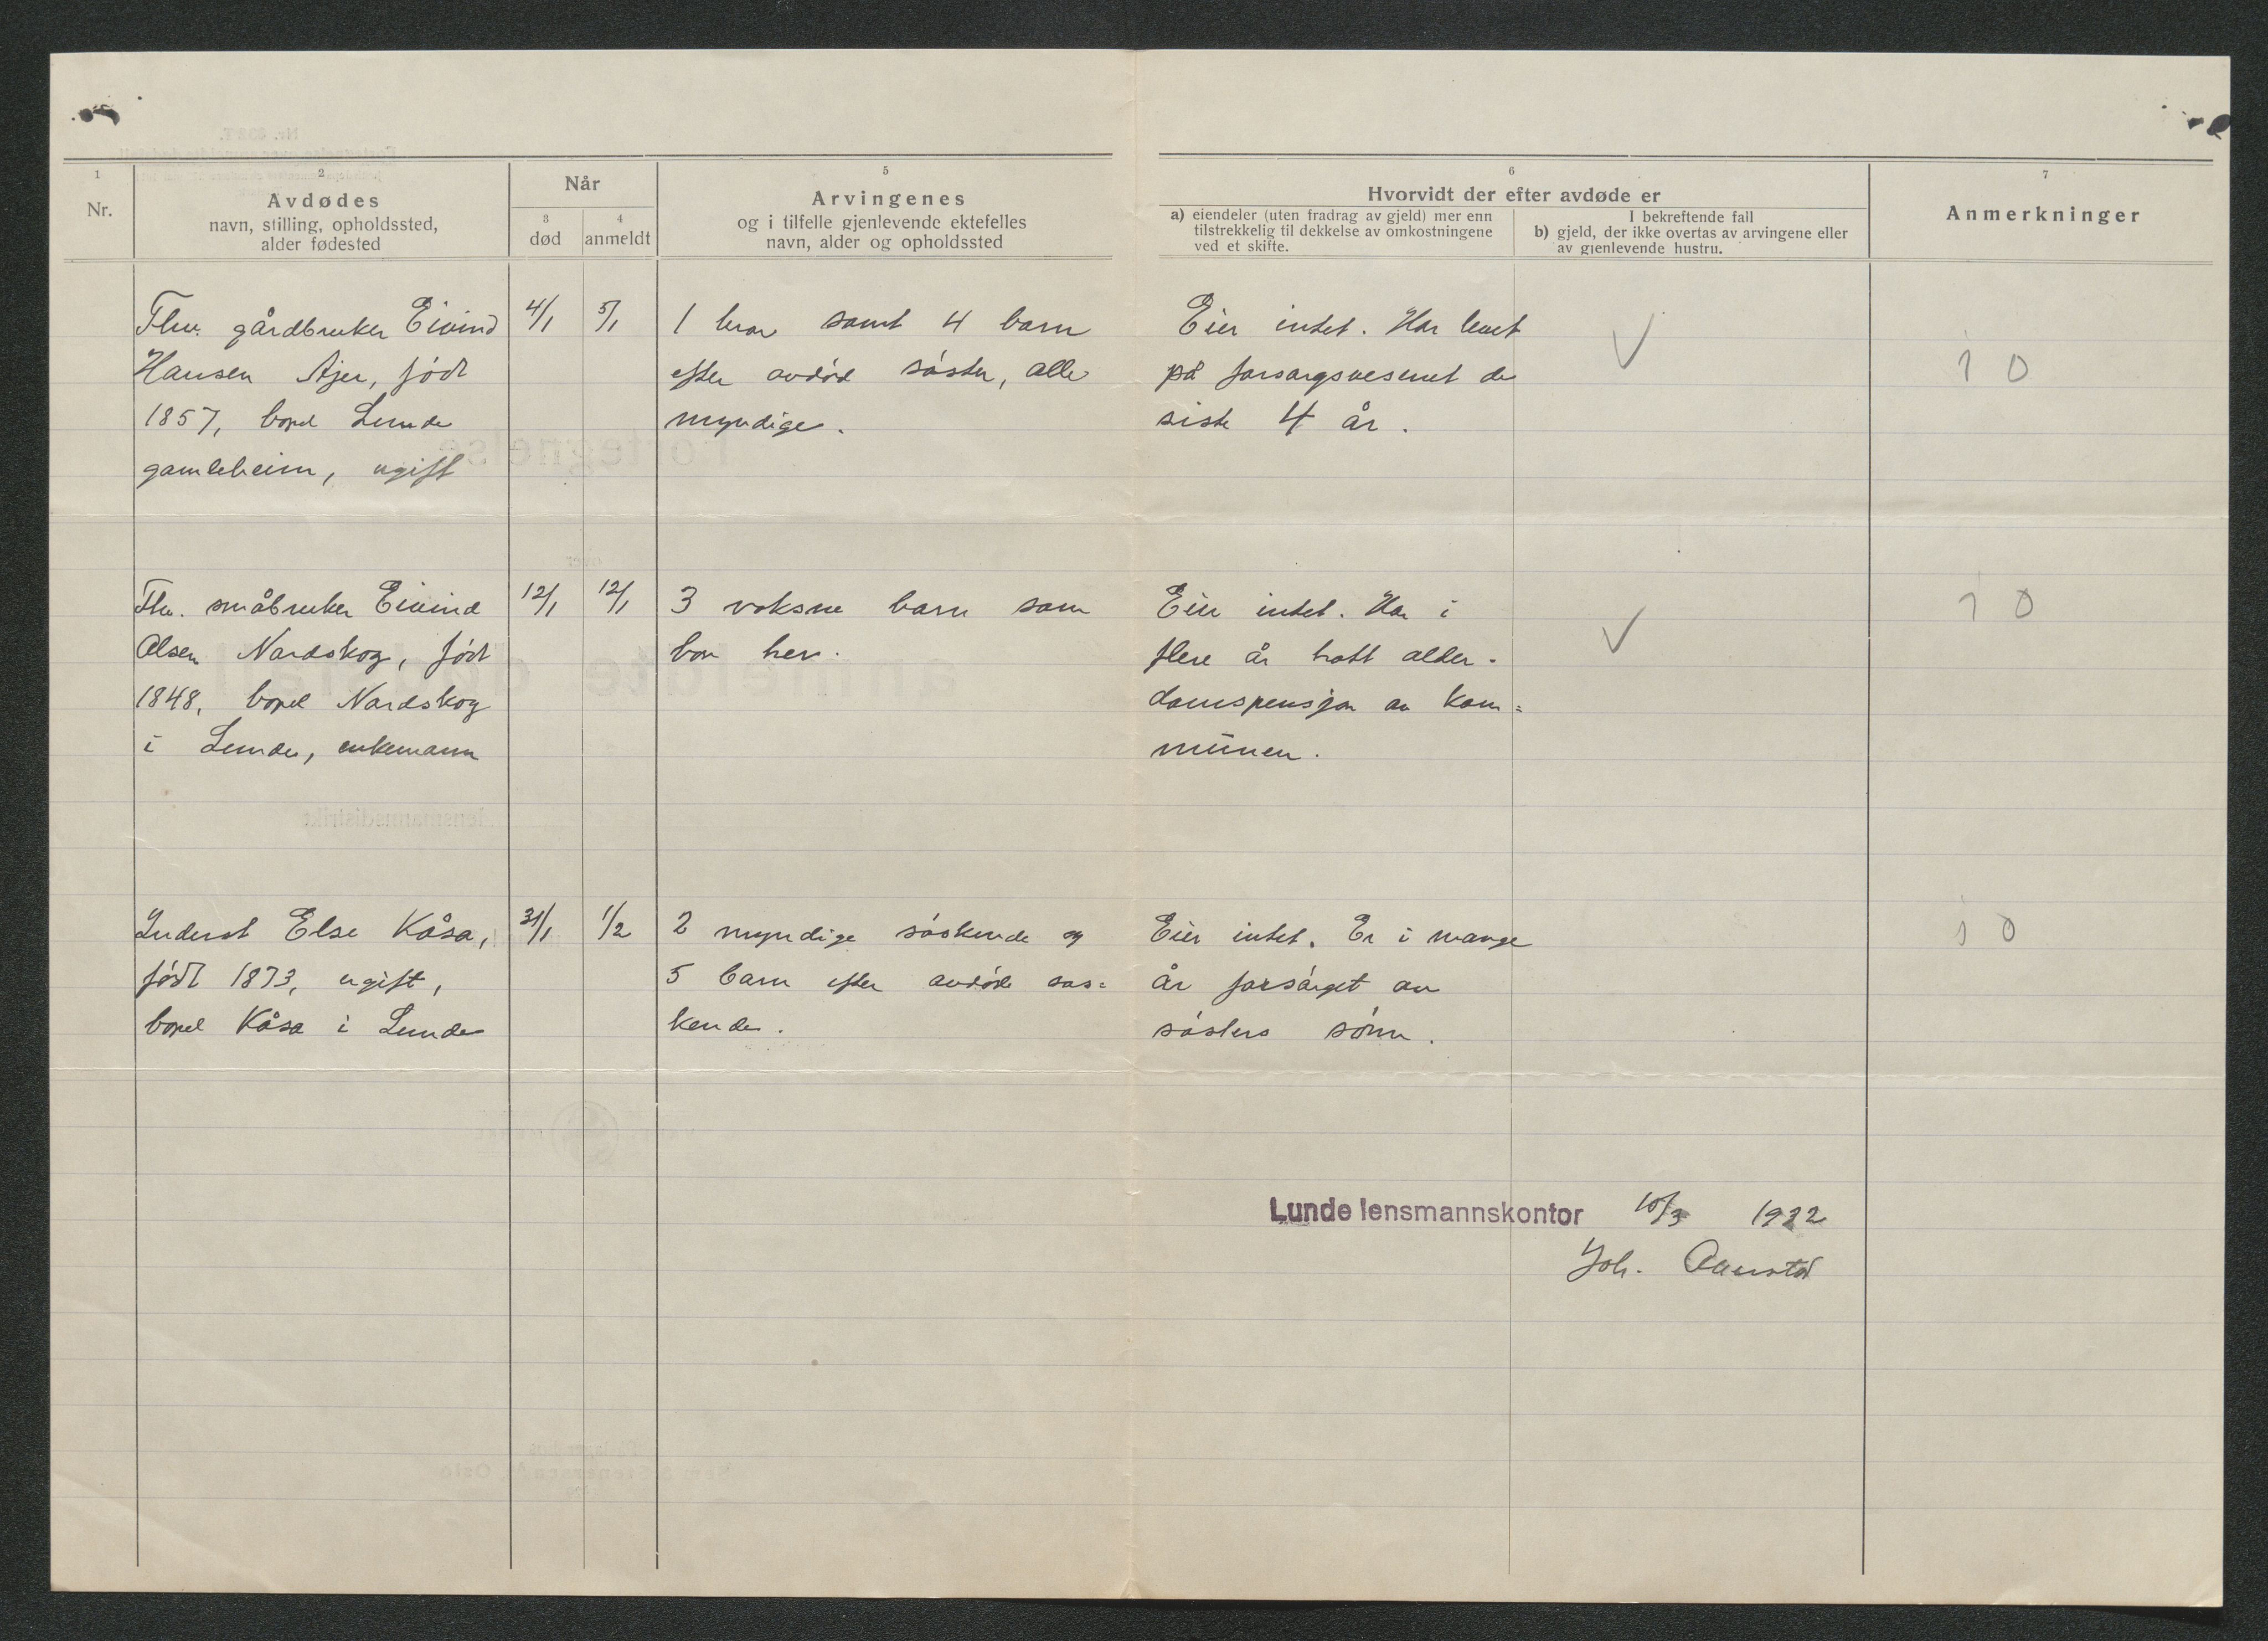 1
Nr.
2
Avdødes
navn, stilling, opholdssted,
alder fødested
Når
3
død
4
anmeldt
5
Arvingenes
og i tilfelle gjenlevende ektefelles
navn, alder og opholdssted
6
Hvorvidt der efter avdøde er
a) eiendeler (uten fradrag av gjeld) mer enn
tilstrekkelig til dekkelse av omkostningene
ved et skifte.
I bekreftende fall
b) gjeld, der ikke overtas av arvingene eller
av gjenlevende hustru.
7
Anmerkninger
Fhv. gårdbruker Eivind
Hansen Ajer, født
1857, bopel Lunde
gamleheim, ugift
4/1
5/1
1 bror samt 4 barn
efter avdød søster, alle
myndige.
Eier intet. Har levet
på forsorgsvesenet de
siste 4 år.
10
Fhv. småbruker Eivind
Olsen Nordskog, født
1848, bopel Nordskog
i Lunde, enkemann
12/1
12/1
3 voksne barn som
bor her.
Eier intet. Har i
flere år hatt alder-
domspensjon av kom=
munen.
10
Inderst Else Kåsa,
født 1873, ugift,
bopel Kåsa i Lunde
31/1
1/2
2 myndige søskende og
5 barn efter avdøde søs=
kende.
Eier intet. Er i mange
år forsørget av
søsters sønn.
10
Lunde lensmannskontor 10/3 1932
Joh.